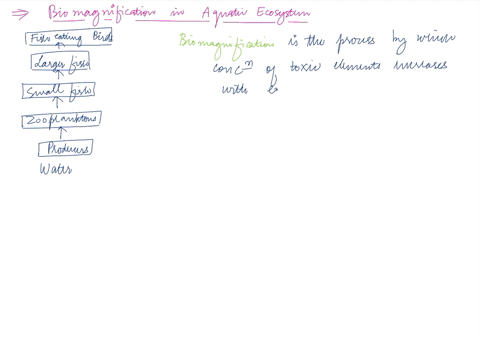 ⇒ Biomagnification in Aquatic Ecosystem
Fish eating Birds
Larger fish
Small fish
Zooplanktons
Producers
Water
Biomagnification is the process by which
concⁿ of toxic elements increases
with